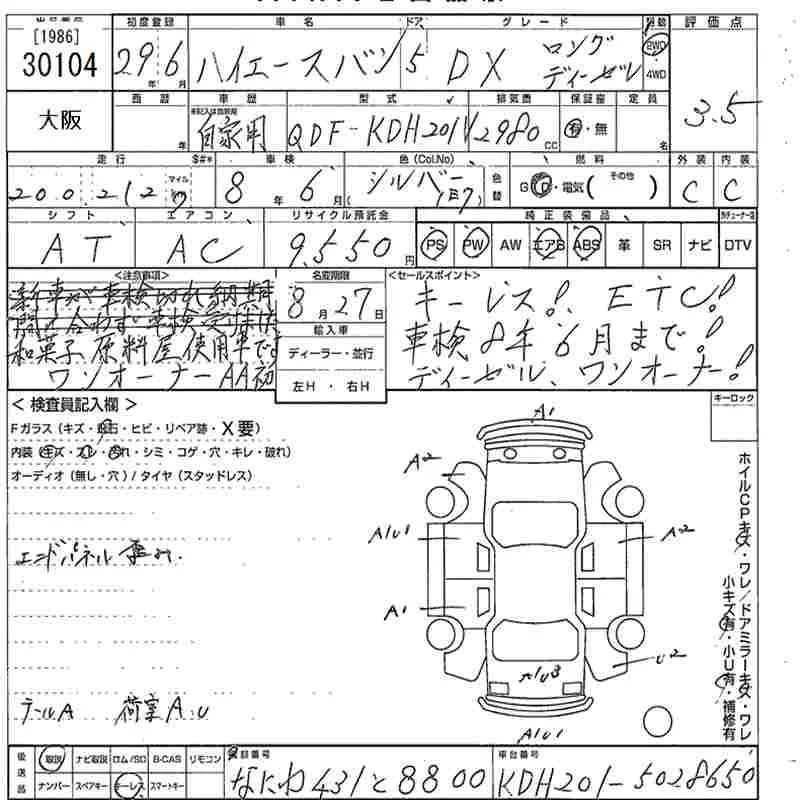 [1986]
30104
大阪
初度登録 車名 ドア グレード 評価点
29年 6月 ハイエースバン 5 DX ロング ディーゼル 2WD 4WD
3.5
西暦 車歴 型式 排気量 保証書 定員
年 自家用 QDF-KDH201V 2980cc 有・無 名
走行 $#* 車検 色(Col.No) 燃料 外装 内装
200,212 マイル 8年 6月 シルバー(1E7) 色替 G D・電気( その他 ) C C
シフト エアコン リサイクル預託金 純正装備品
AT AC 9,550円 PS PW AW エアB ABS 革 SR ナビ DTV
<注意事項> 名変期限 <セールスポイント>
新車が車検切れ納期
8月27日
キーレス! ETC!
輸入車
和菓子原料屋使用車です
ディーラー・並行
車検8年6月まで!
ワンオーナーAA初
左H・右H
ディーゼル、ワンオーナー!
<検査員記入欄>
キーロック
Fガラス(キズ・飛石・ヒビ・リペア跡・X要)
内装(キズ・スレ・汚れ・シミ・コゲ・穴・キレ・破れ)
オーディオ(無し・穴)/タイヤ(スタッドレス)
エンドパネル 歪み.
ラールA 荷室A.U
A1
A2
A1U1
A2
A1
U2
A1U3
A1U1
ホイルCPキズ・ワレ/ドアミラーキズ・ワレ
小キズ有・小U有・補修有
後送品
取説 ナビ取説 ロム/SD B-CAS リモコン
ナンバー スペアキー キーレス スマートキー
登録番号
なにわ 431 と 8800
車台番号
KDH201-5028650